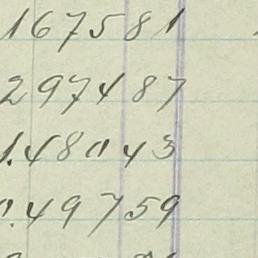 167581
297487
1.48043
1.49759